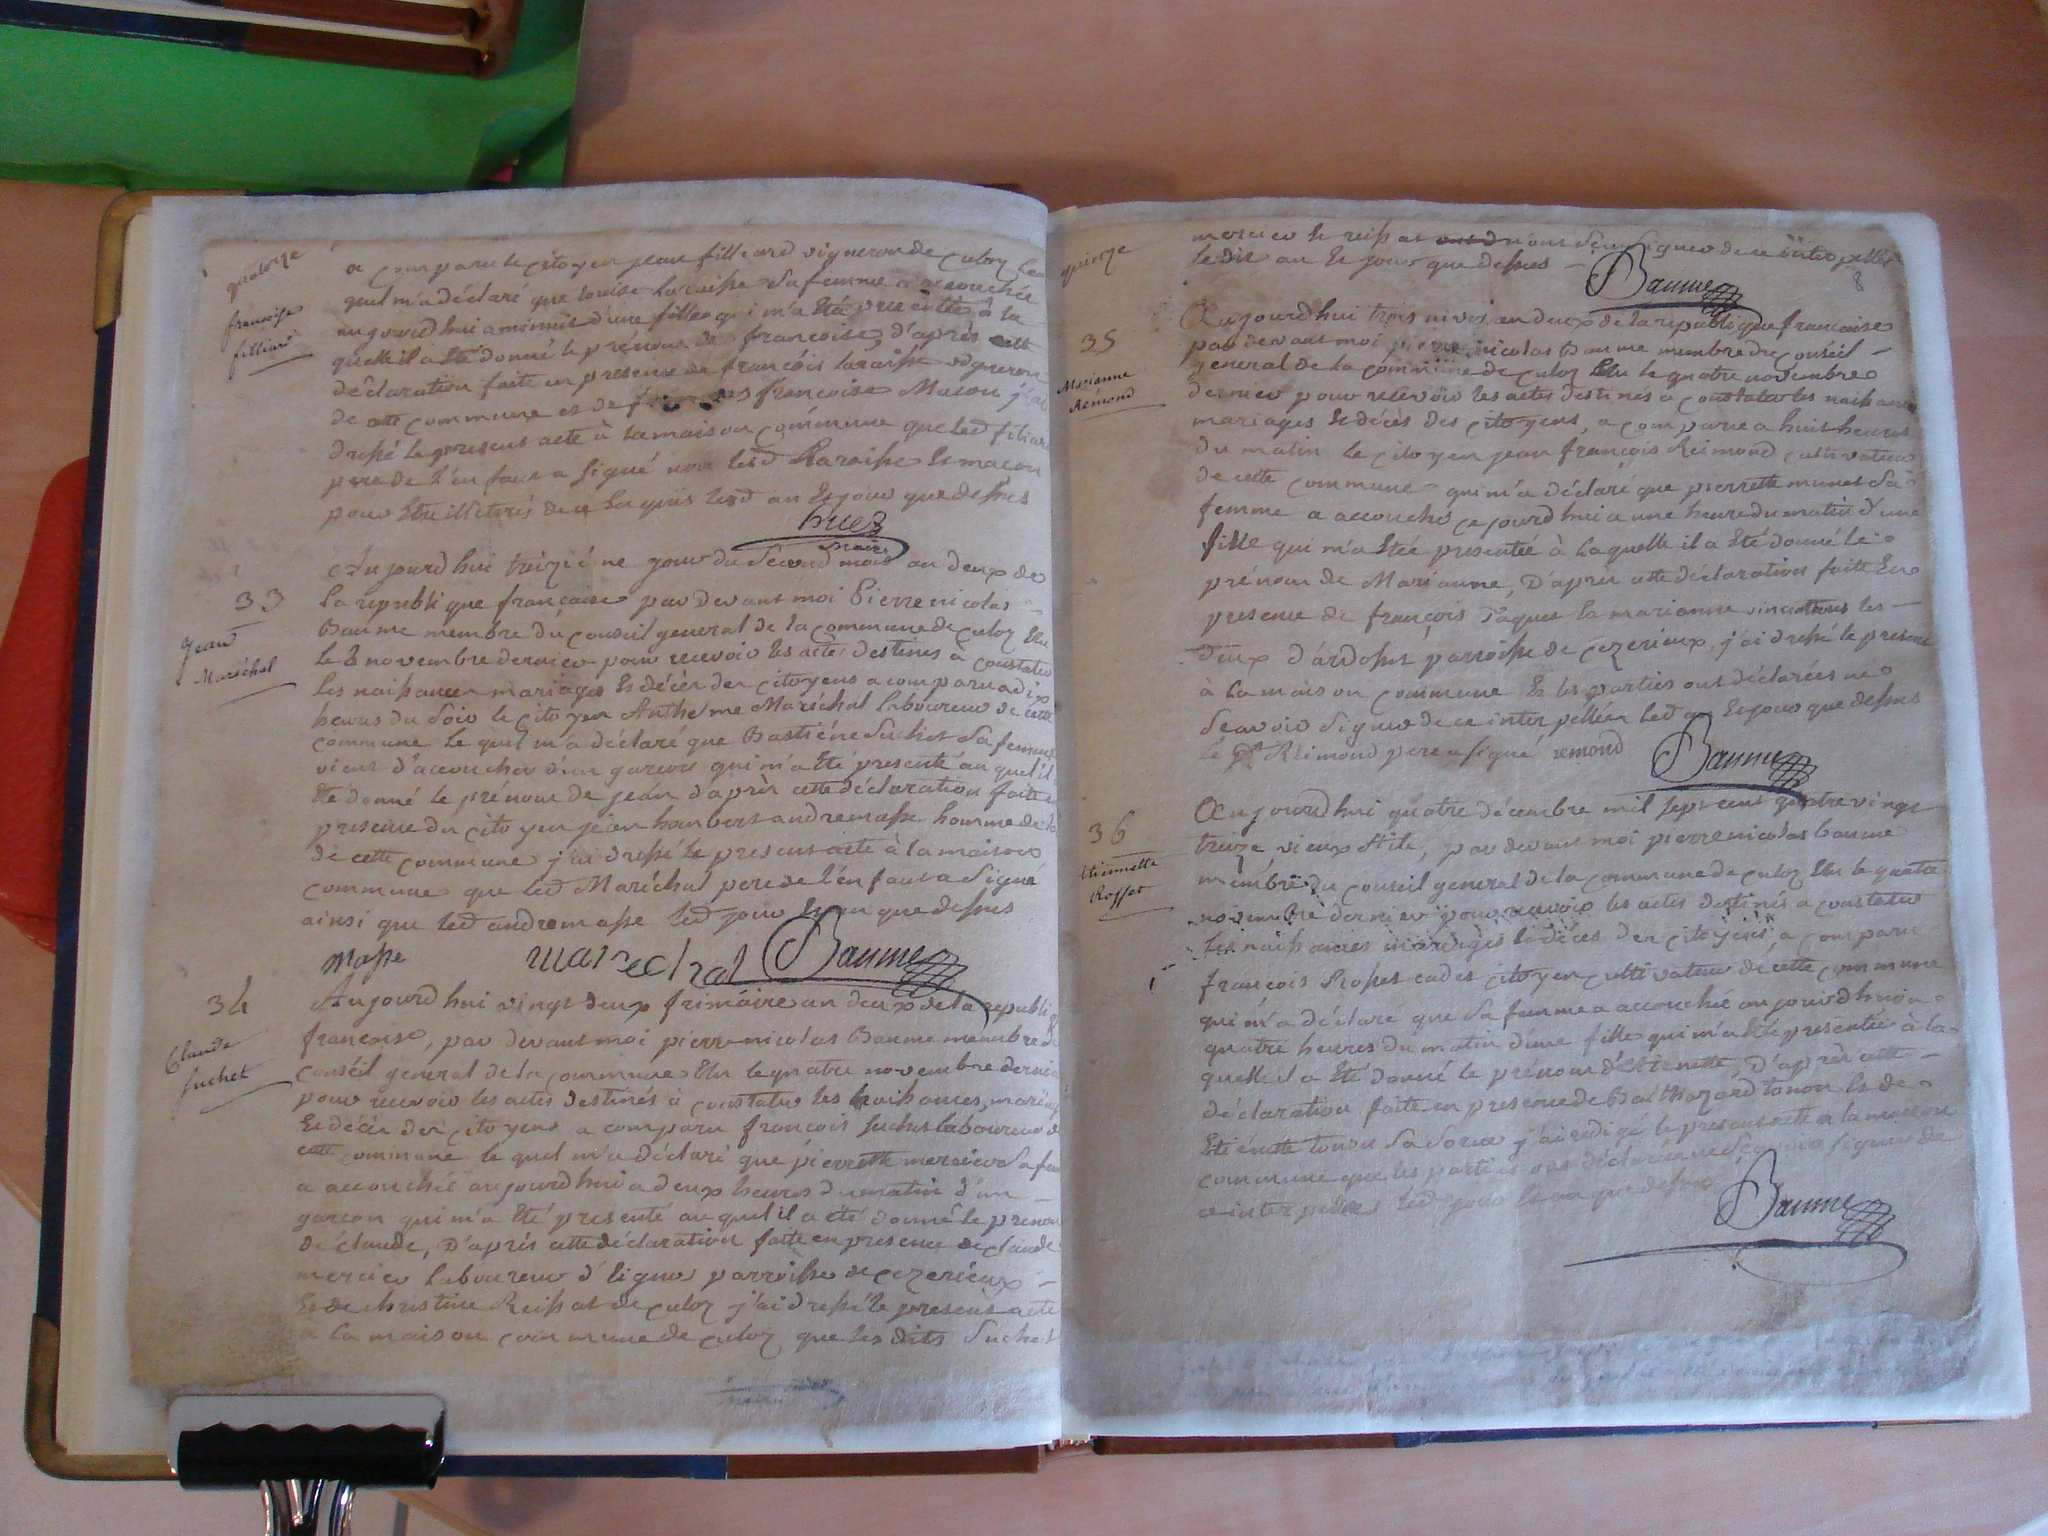 quatorze
francoise
filliard
a comparu le citoyen jean filliard vigneron de culoz
quel m'a déclaré que louise laraisse sa femme a accouchée
aujourdhui a minuit d'une fille qui m'a été presentée à la
quelle il a été donné le prénom de francoise, d'après cette
déclaration faite en presence de francois laraisse vigneron
de cette commune et de francoise Macon j'ai
dressé le present acte à la maison commune que led filiard
pere de l'enfant a signé non lesd Laraisse et macon
pour etre illiterés de ce enquis led an et jour que dessus
maire
33
jean
Maréchal
Aujourdhui treiziéme jour du second mois an deux de
la republique francaise par devant moi Pierre nicolas
Baume membre du conseil general de la commune de culoz elu
le 8 novembre dernier pour recevoir les actes destinés à constater
les naissances mariages et décès des citoyens a comparu a dix
heures du soir le citoyen Anthelme Maréchal laboureur de cette
commune le quel m'a déclaré que Bastiéne Suchet sa femme
vient d'accoucher d'un garcon qui m'a été presenté au quel il
été donné le prénom de jean d'après cette déclaration faite
presence du citoyen jean andremasse homme de
de cette commune j'ai dressé le present acte à la maison
commune que led Maréchal pere de l'enfant a signé
ainsi que led andremasse led jour et an que dessus
masse marechal Baume
34
Claude
suchet
Aujourdhui vingt deux frimaire an deux de la republi
francaise, par devant moi pierre nicolas Baume membre du
conseil general de la commune elu le quatre novembre dernier
pour recevoir les actes destinés à constater les naissances, mariages
et décès des citoyens a comparu francois suchet laboureur de
cette commune le quel m'a déclaré que pierrette mercier sa fem
a accouchée aujourdhui a deux heures du matin d'un
garcon qui m'a été presenté au quel il a été donné le prenom
de claude, D'après cette déclaration faite en presence de claude
mercier laboureur d'ligneu parroisse de cezerieux
et de christine Reissat de culoz j'ai dressé le present acte
a la maison commune de culoz que les dits suchet
quinze
8
mercier et reissat n'ont seu signer de ce interpellés
le dit an et jour que dessus
Baume
35
Marianne
Rémond
Aujourdhui trois nivos, an deux de la republique francaise
par devant moi pierre nicolas Baume membre du conseil
general de la commune de culoz elu le quatre novembre
dernier pour recevoir les actes destinés a constater les naissances
mariages et décès des citoyens, a comparu a huit heures
du matin le citoyen jean francois Réimond cultivateur
de cette commune qui m'a déclaré que pierrette munet sa
femme a accouché ce jourdhui a une heure du matin d'une
fille qui m'a étée presentée à laquelle il a été donné le
prénom de Marianne, D'après cette déclaration faite en
presence de francois et marianne les
deux d'ardosset parroisse de cezerieux, j'ai dressé le present
à la maison commune et les parties ont déclarées ne
scavoir signer de ce interpellées led an et jour que dessus
le dt Réimond pere a signé remond Baume
36
Etiennette
Rosset
Aujourdhui quatre décembre mil sept cent quatre vingt
treize vieux stile, par devant moi pierre nicolas baume
membre du conseil general de la commune de culoz elu le quatre
novembre dernier pour recevoir les actes destinés a constater
les naissances mariages et décès des citoyens, a comparu
francois Rosset cadet citoyen cultivateur de cette commune
qui m'a déclaré que sa femme a accouchée aujourdhui a
quatre heures du matin d'une fille qui m'a été presentée à la
quelle il a été donné le prénom d'étienette, D'après cette
déclaration faite en presence de Balthazard tonon et de
etiénette tonon sa soeur j'ai redigé le present acte a la maison
commune que les parties ont déclarées ne scavoir signer de
ce interpellées led jour et an que dessus
Baume